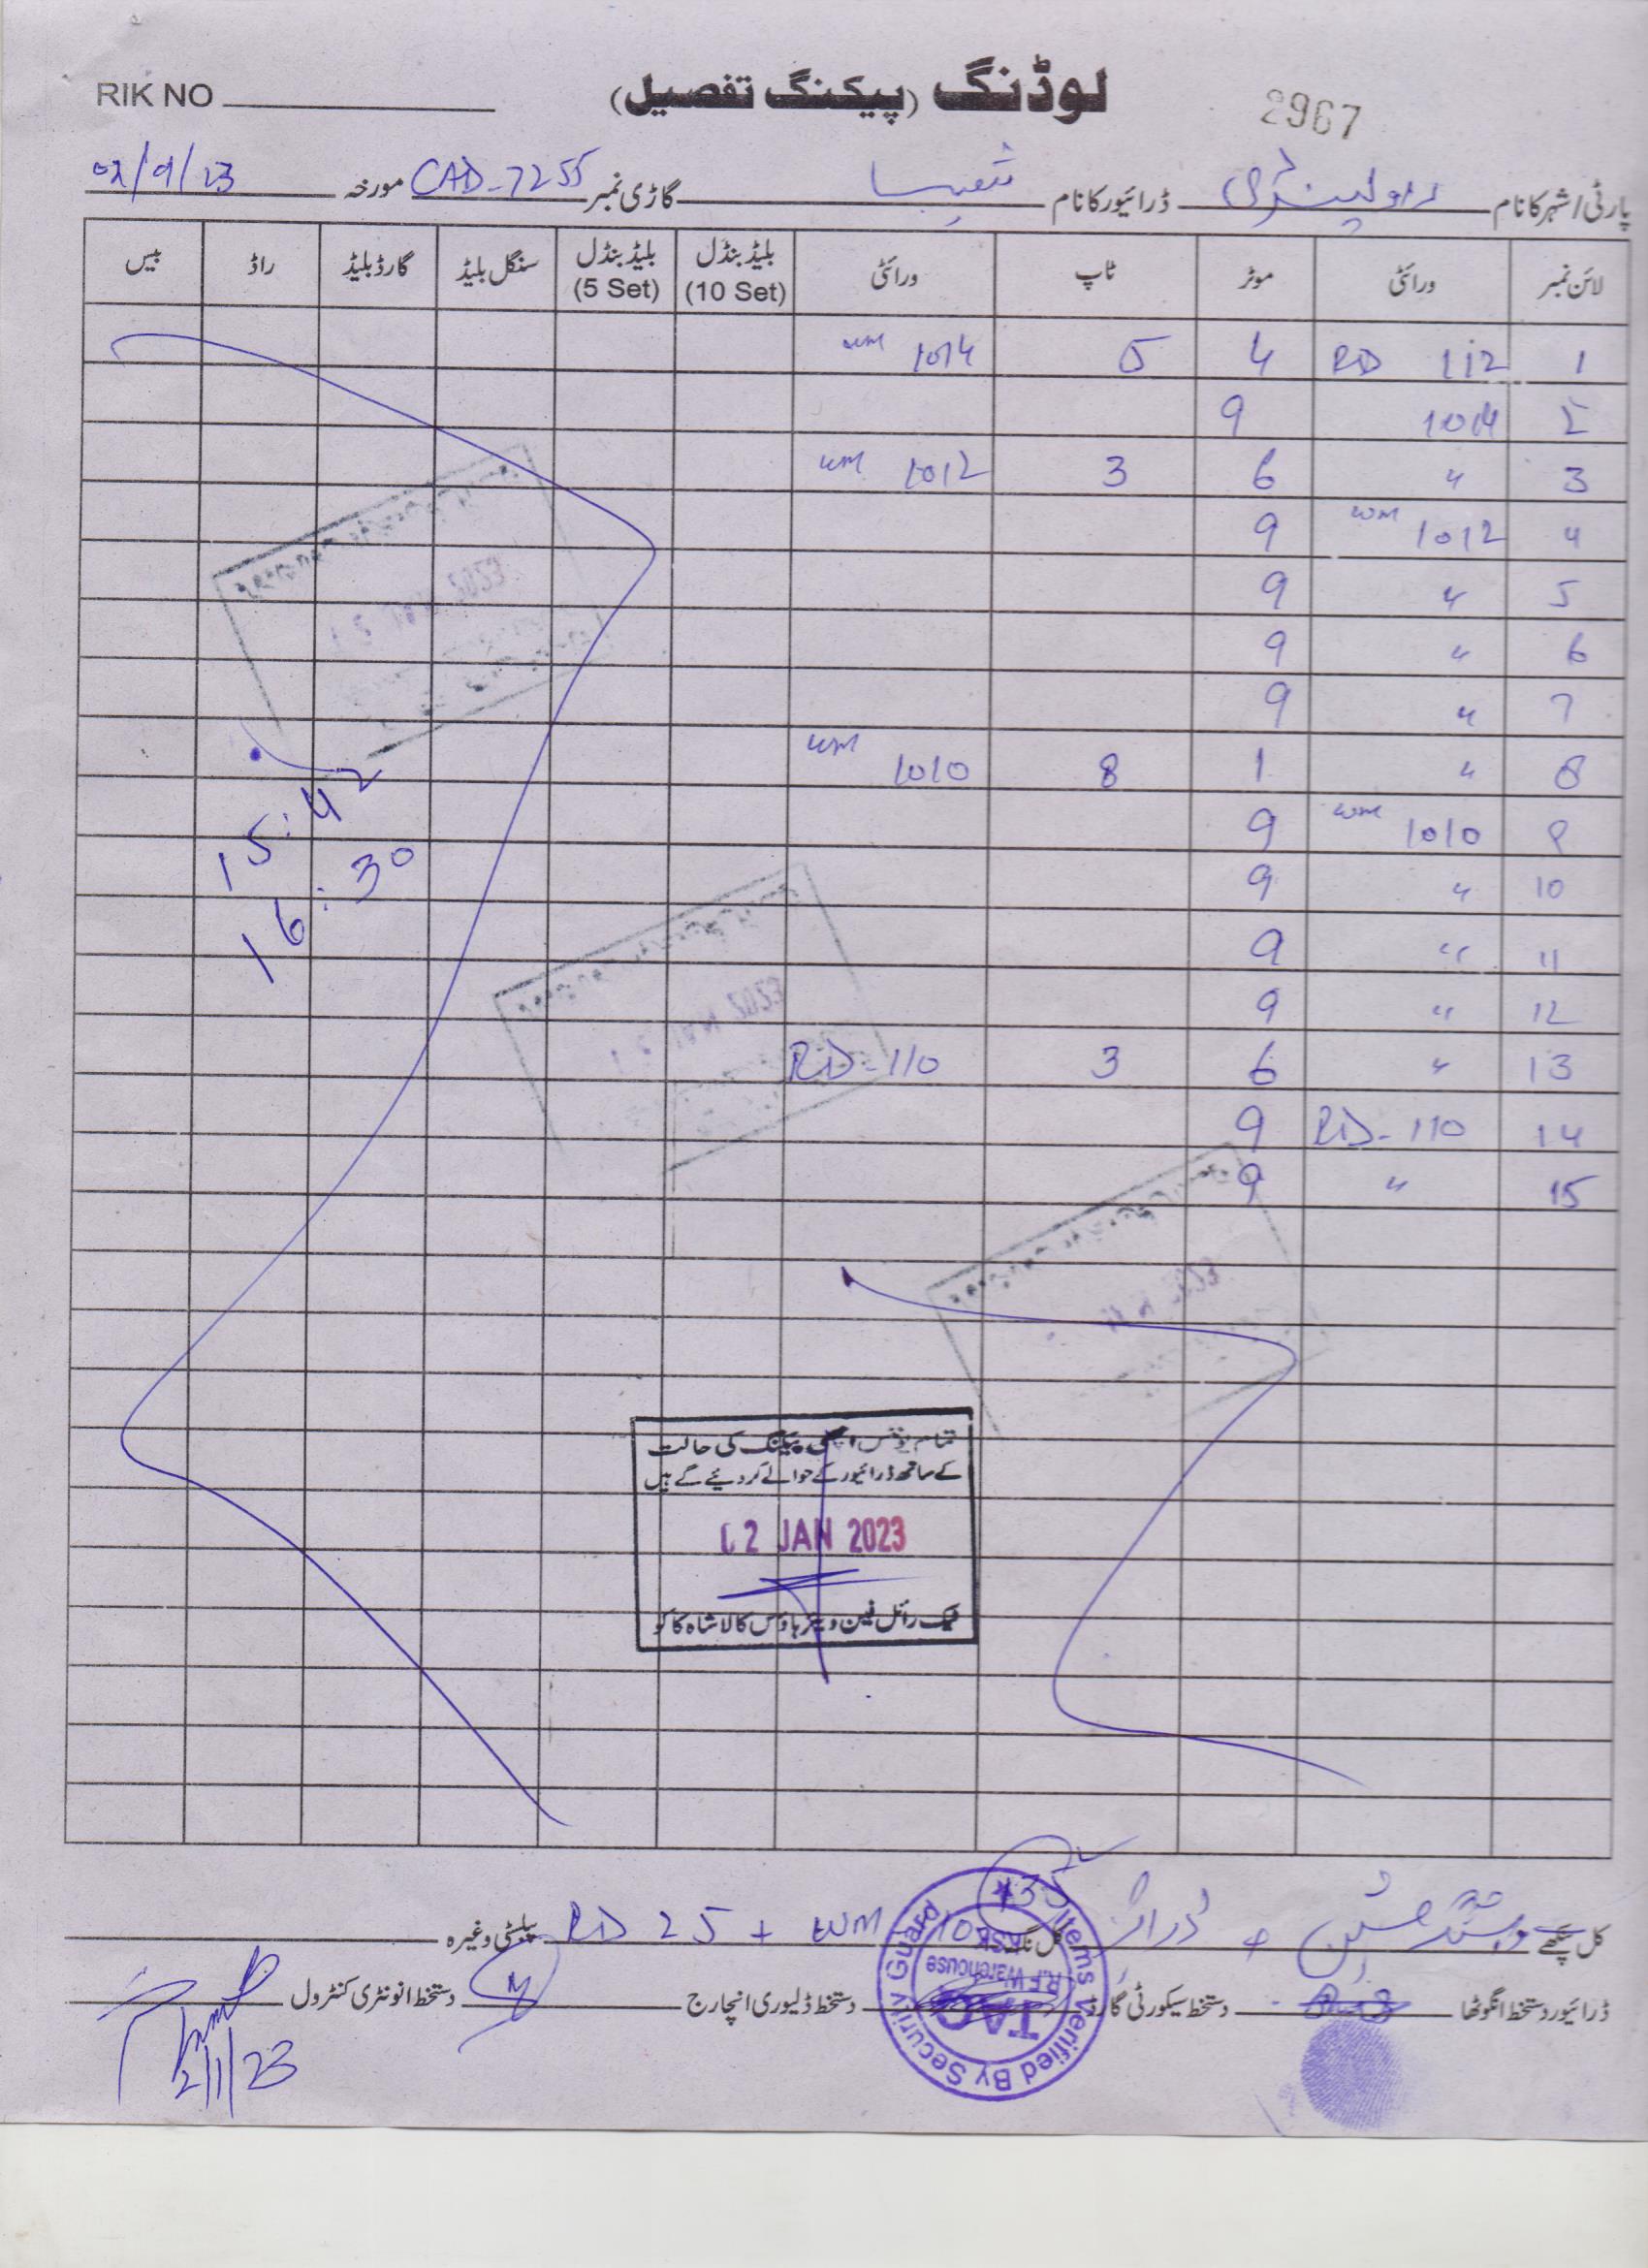 RIK NO
لوڈنگ (پیکنگ تفصیل)
2967
پارٹی/شہر کا نام راولپنڈی ڈرائیور کا نام شعیب گاڑی نمبر CAD-7255 مورخہ
لائن نمبر ورائٹی موٹر ٹاپ ورائٹی بلیڈ بنڈل (10 Set) بلیڈ بنڈل (5 Set) سنگل بلیڈ گارڈ بلیڈ راڈ بیس
1 RD 112 4 5 WM 1014
2 1014 9
3 " 6 3 WM 1012
4 WM 1012 9
5 " 9
6 " 9
7 " 9
8 " 1 8 WM 1010
9 WM 1010 9
10 " 9
11 " 9
12 " 9
13 " 6 3 RD-110
14 RD-110 9
15 " 9
15:42
16:30
تمام یونٹس اچھی پیکنگ کی حالت
کے ساتھ ڈرائیور کے حوالے کر دیئے گے ہیں
02 JAN 2023
ٹیک رائل فین ویئر ہاؤس کالا شاہ کاکو
135
کل پنکھے کل نگ RD 25 + WM پلیٹی وغیرہ
ڈرائیور دستخط انگوٹھا دستخط سیکورٹی گارڈ دستخط ڈلیوری انچارج دستخط انونٹری کنٹرول
Items Verified By Security Guard
KSK
R.F Warehouse
TAC
2/1/23